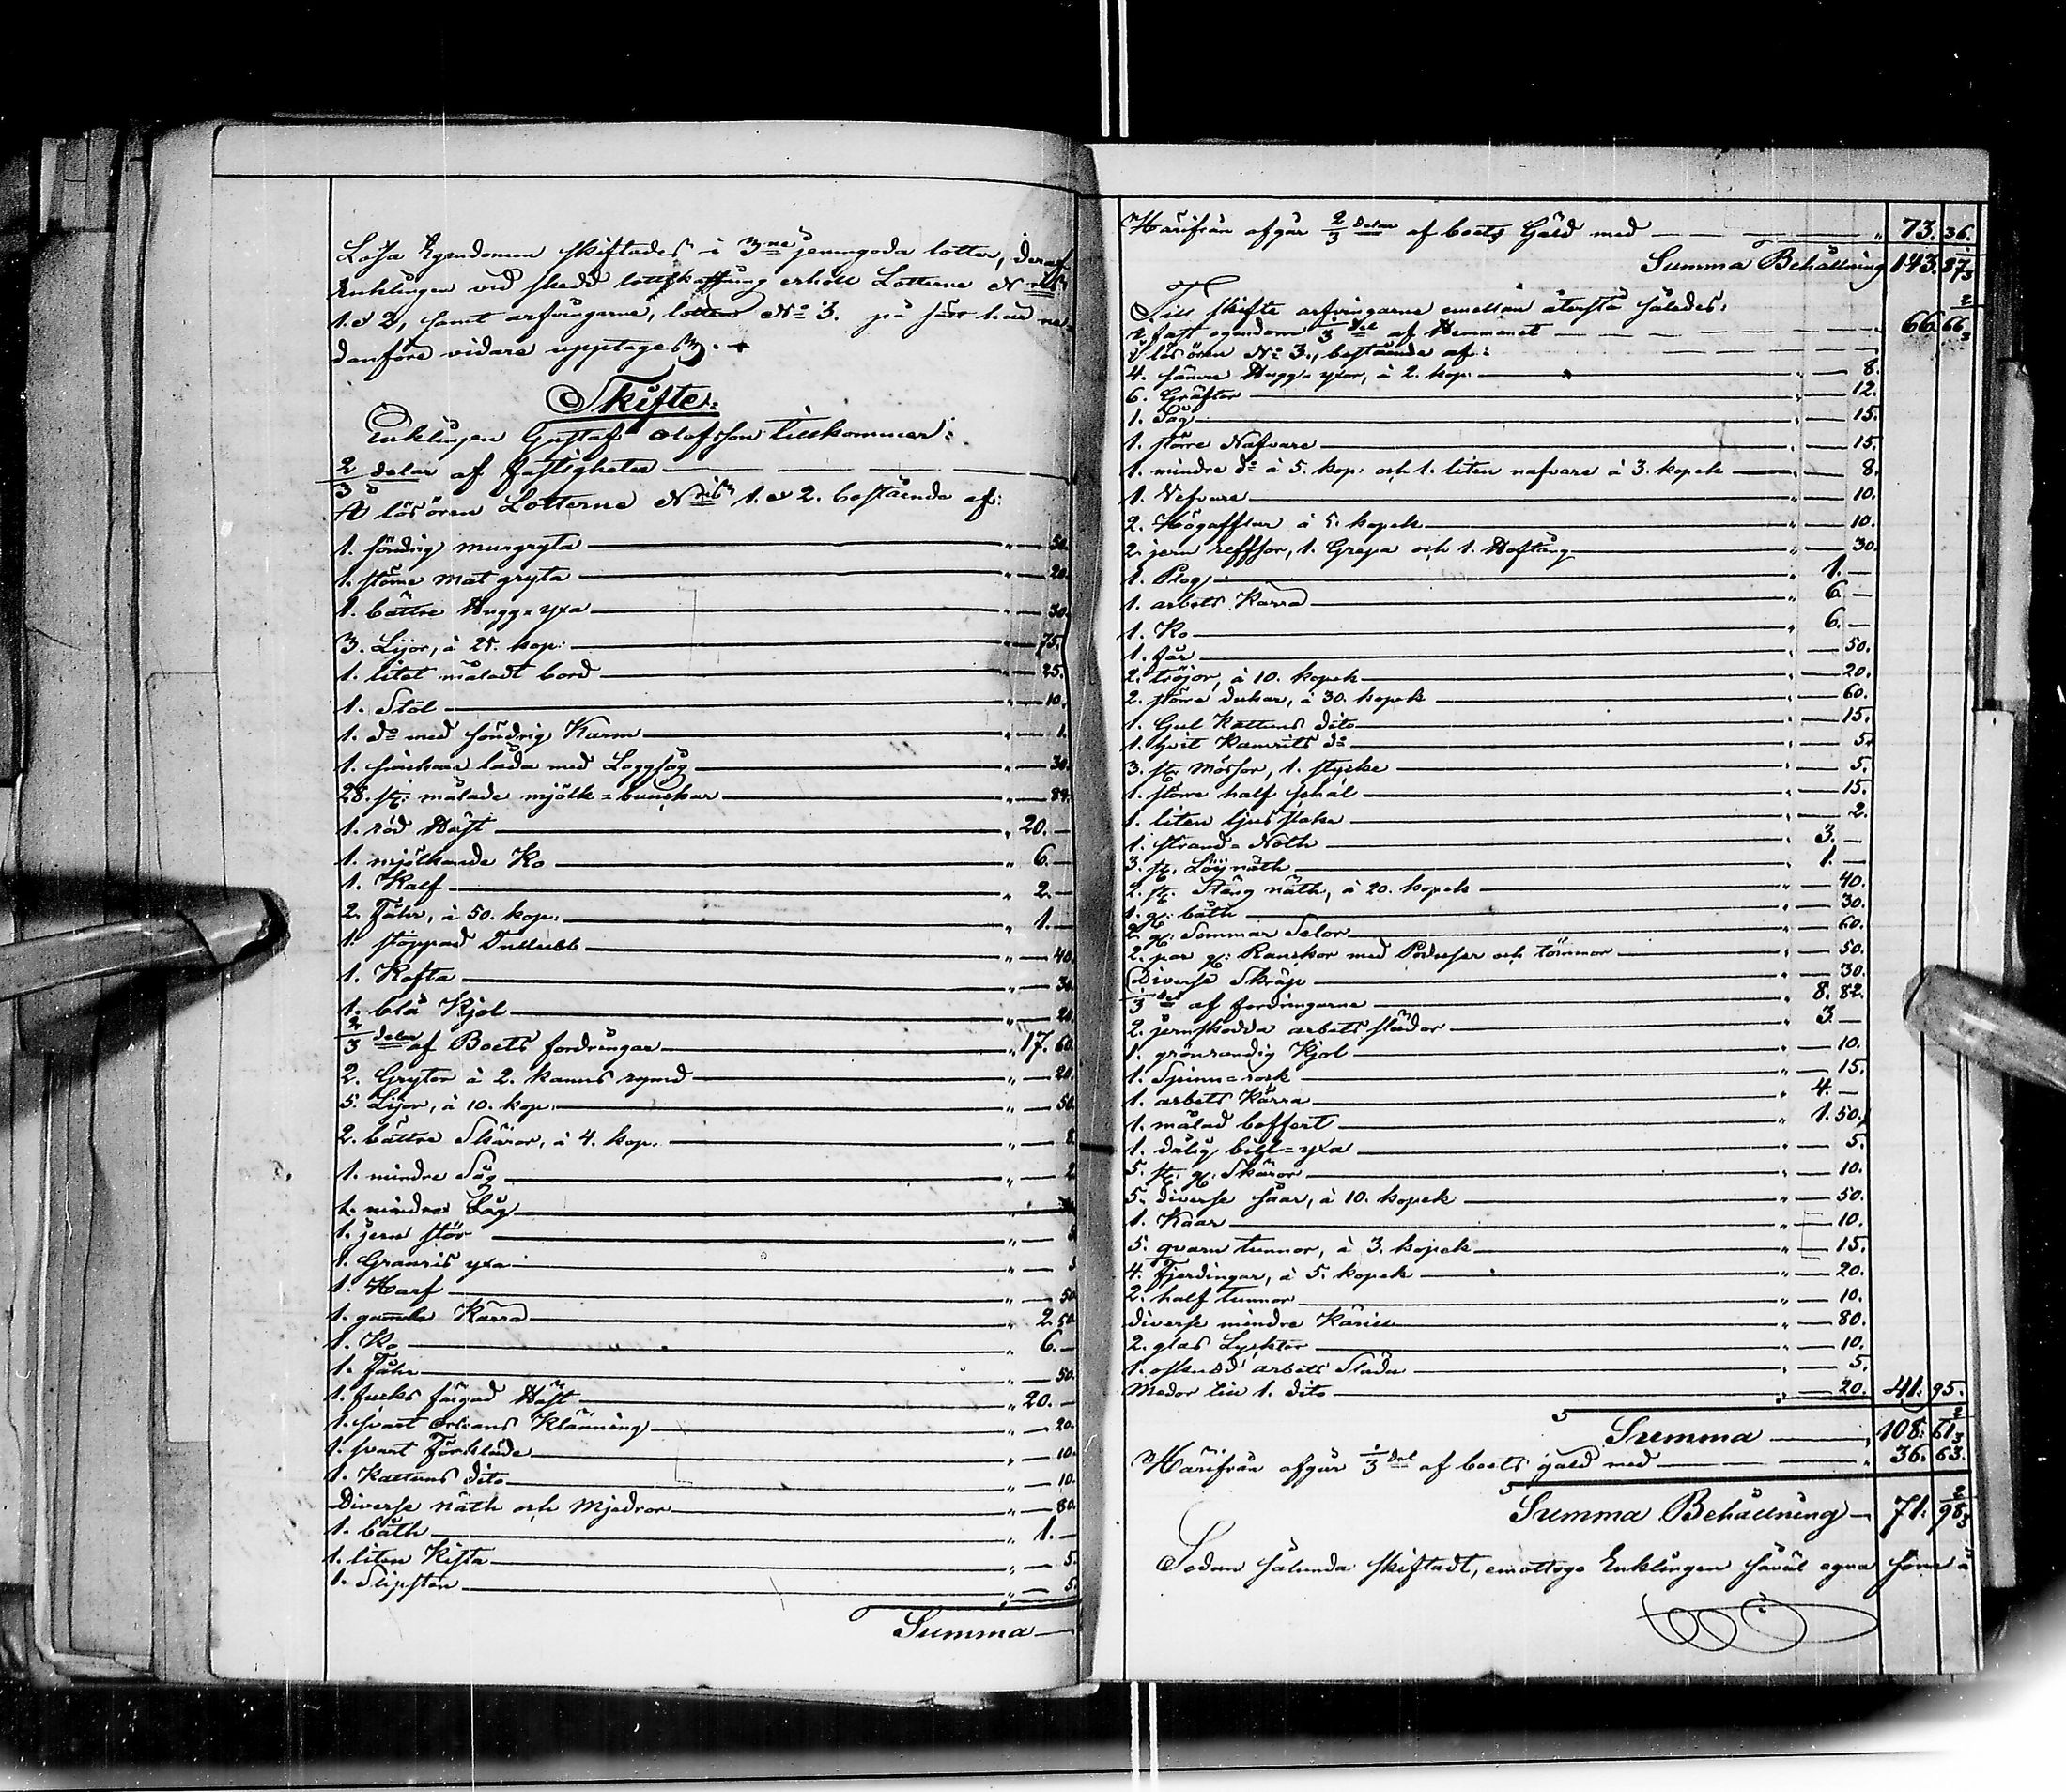 Lösa Egendomen skiftades i 3ne jemngoda lotter, deraf
Enklingen vid skedd lottkastning erhöll Lotterne N:ris
1. & 2, samt arfvingarne, lotten N:o 3. på sätt här ne-
danföre vidare upptages. +
Skifte:
Enklingen Gustaf Olofsson tillkommer:
2/3 delar af fastigheten
Å lösören Lotterne N:ris 1. & 2. bestående af:
1. söndrig murgryta " 50.
1. större mat gryta " 20.
1. bättre Hugg=yxa " 30.
3. Lijor, à 25. kop: " 75.
1. litet måladt bord " 25.
1. Stol " 10.
1. d:o med söndrig Karm " 1.
1. snickare låda med Laggsåg " 30.
28. st: målade mjölk=bunckar " 84.
1. röd Häst " 20. —
1. mjölkande Ko " 6. —
1. Kalf " 2. —
2. Fåhr, à 50. kop: " 1. —
1. stoppad Tullubb " 40.
1. Kofta " 30.
1. blå Kjol " 20.
2/3 delar af Boets fordringar " 17. 60.
2. Grytor à 2. kanns rymd " 20.
5. Lijor, à 10. kop: " 50.
2. bättre Skäror, à 4. kop. " 8.
1. mindre Såg " 2
1. mindre Såg
1. jern stör " 5
1. Granris yxa " 5
1. Harf " 50
1. gamla Kärra " 2. 50.
1. Ko " 6. —
1. Fåhr " 50.
1. fucks färgad Häst " 20. —
1. svart Orleans Klänning " 20.
1. svart Förkläde " 10.
1. Kattuns dito " 10.
Diverse näth och Mjedror " 80.
1. båth " 1. —
1. liten Kista " 5.
1. Slipsten " 5.
Summa —
Härifrån afgår 2/3 delar af boets Gäld med " 73. 36.
Summa Behållning 143. 37 1/3
Till skifte arfvingarne emellan återstå således:
i fast egendom 1/3 del af Hemmanet 66. 66 2/3
i lösören N:o 3., bestående af:
4. sämre Hugg=yxor, à 2. kop: " 8.
6. Gräftor " 12.
1. Såg " 15.
1. större Nafvare " 15.
1. mindre d:o à 5. kop: och 1. liten nafvare à 3. kopek " 8.
1. Nefvare " 10.
2. Högafflar à 5. kopek " 10.
2. jern reffsor, 1. Grepa och 1. Hoftång " 30.
1. Plog " 1. —
1. arbets Kärra " 6. —
1. Ko " 6. —
1. får " 50.
2. tröjor, à 10. kopek " 20.
2. större dukar, à 30. kopek " 60.
1. Gul Kattuns dito " 15.
1. hvit Kamrits d:o " 5.
3. st: Mössor, 1. stycke " 5.
1. större half schal " 15.
1. liten ljus staka " 2.
1. Strand=Noth " 3. —
3. st: Löjnäth " 1. —
2. st. Stäng näth, à 20. kopek " 40.
1. g: båth " 30.
2. g: Sommar Selor " 60.
2. par g: Ranckor med och tömmar " 50.
Diverse Skräp " 30.
1/3 del af fordringarne " 8. 82.
2. jernskodda arbets slädor " 3. —
1. grönrandig Kjol " 10.
1. Spinn=rock " 15.
1. arbets Kärra " 4. —
1. målad boffert " 1. 50.
1. dålig bilj=yxa " 5.
5. st: g: Skäror " 10.
5. diverse såar, à 10. kopek " 50.
1. Kaar " 10.
5. qvarn tunnor, à 3. kopek " 15.
4. Fjerdingar, à 5. kopek " 20.
2. half tunnor " 10.
diverse mindre Kärill " 80.
2. glas Lycktor " 10.
1. oskodd arbets Släda " 5.
Medor till 1. dito " 20. 41. 95.
Summa " 108. 61 2/3
Härifrån afgår 1/3 del af boets gäld med " 36. 63.
Summa Behållning — 71. 98 2/3
Sedan sålunda skiftadt, emottogo Enklingen såväl egna som å